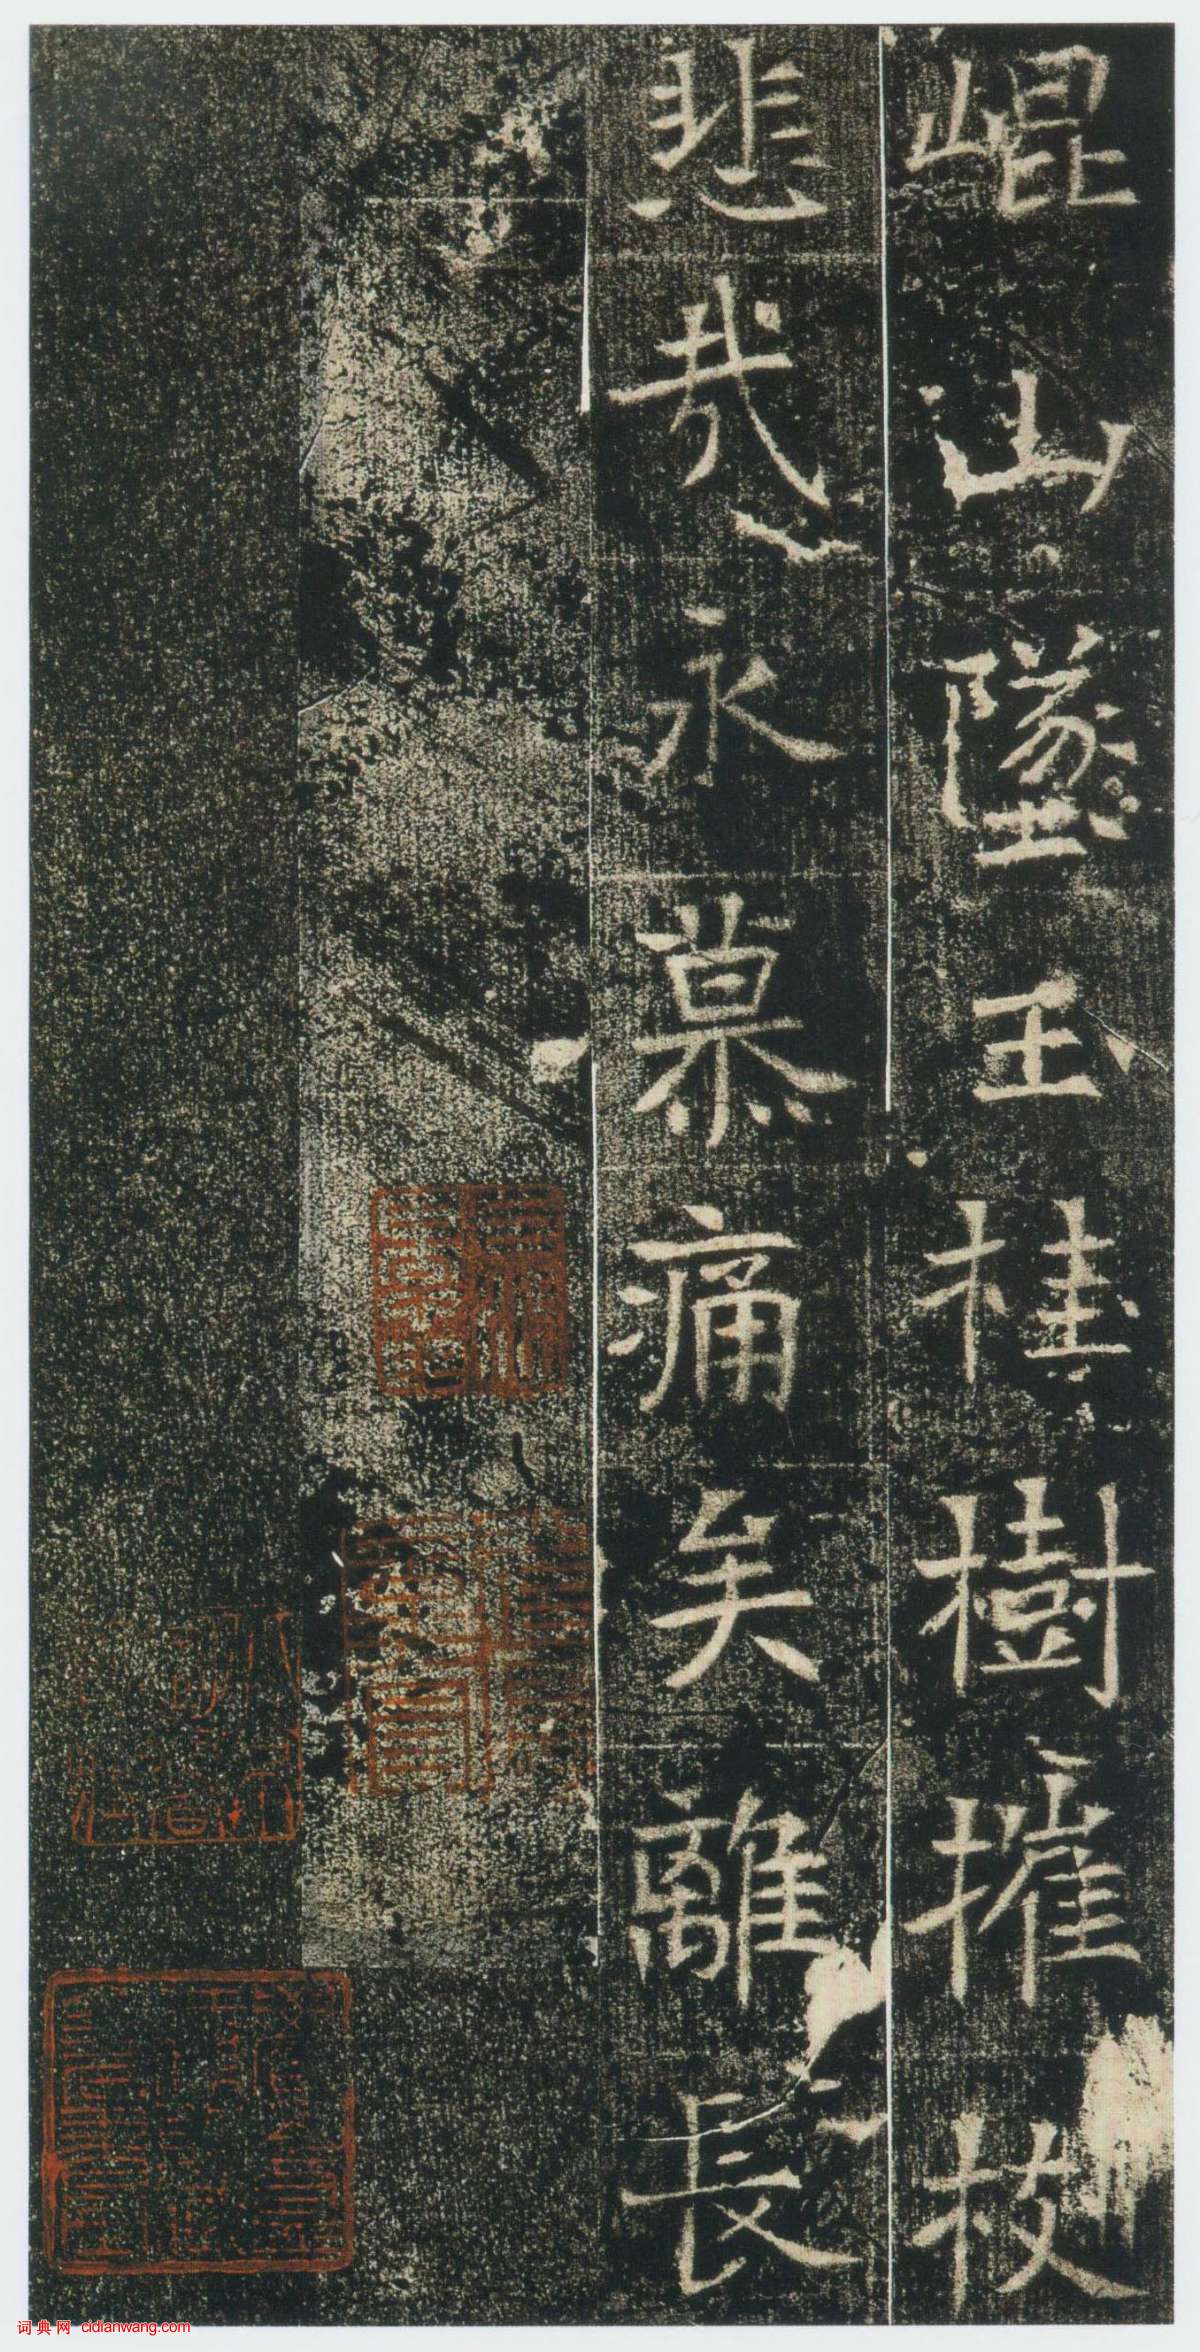 崐山墜玉桂樹摧枝
悲哉永慕痛矣離長
词典网 cidianwang.com